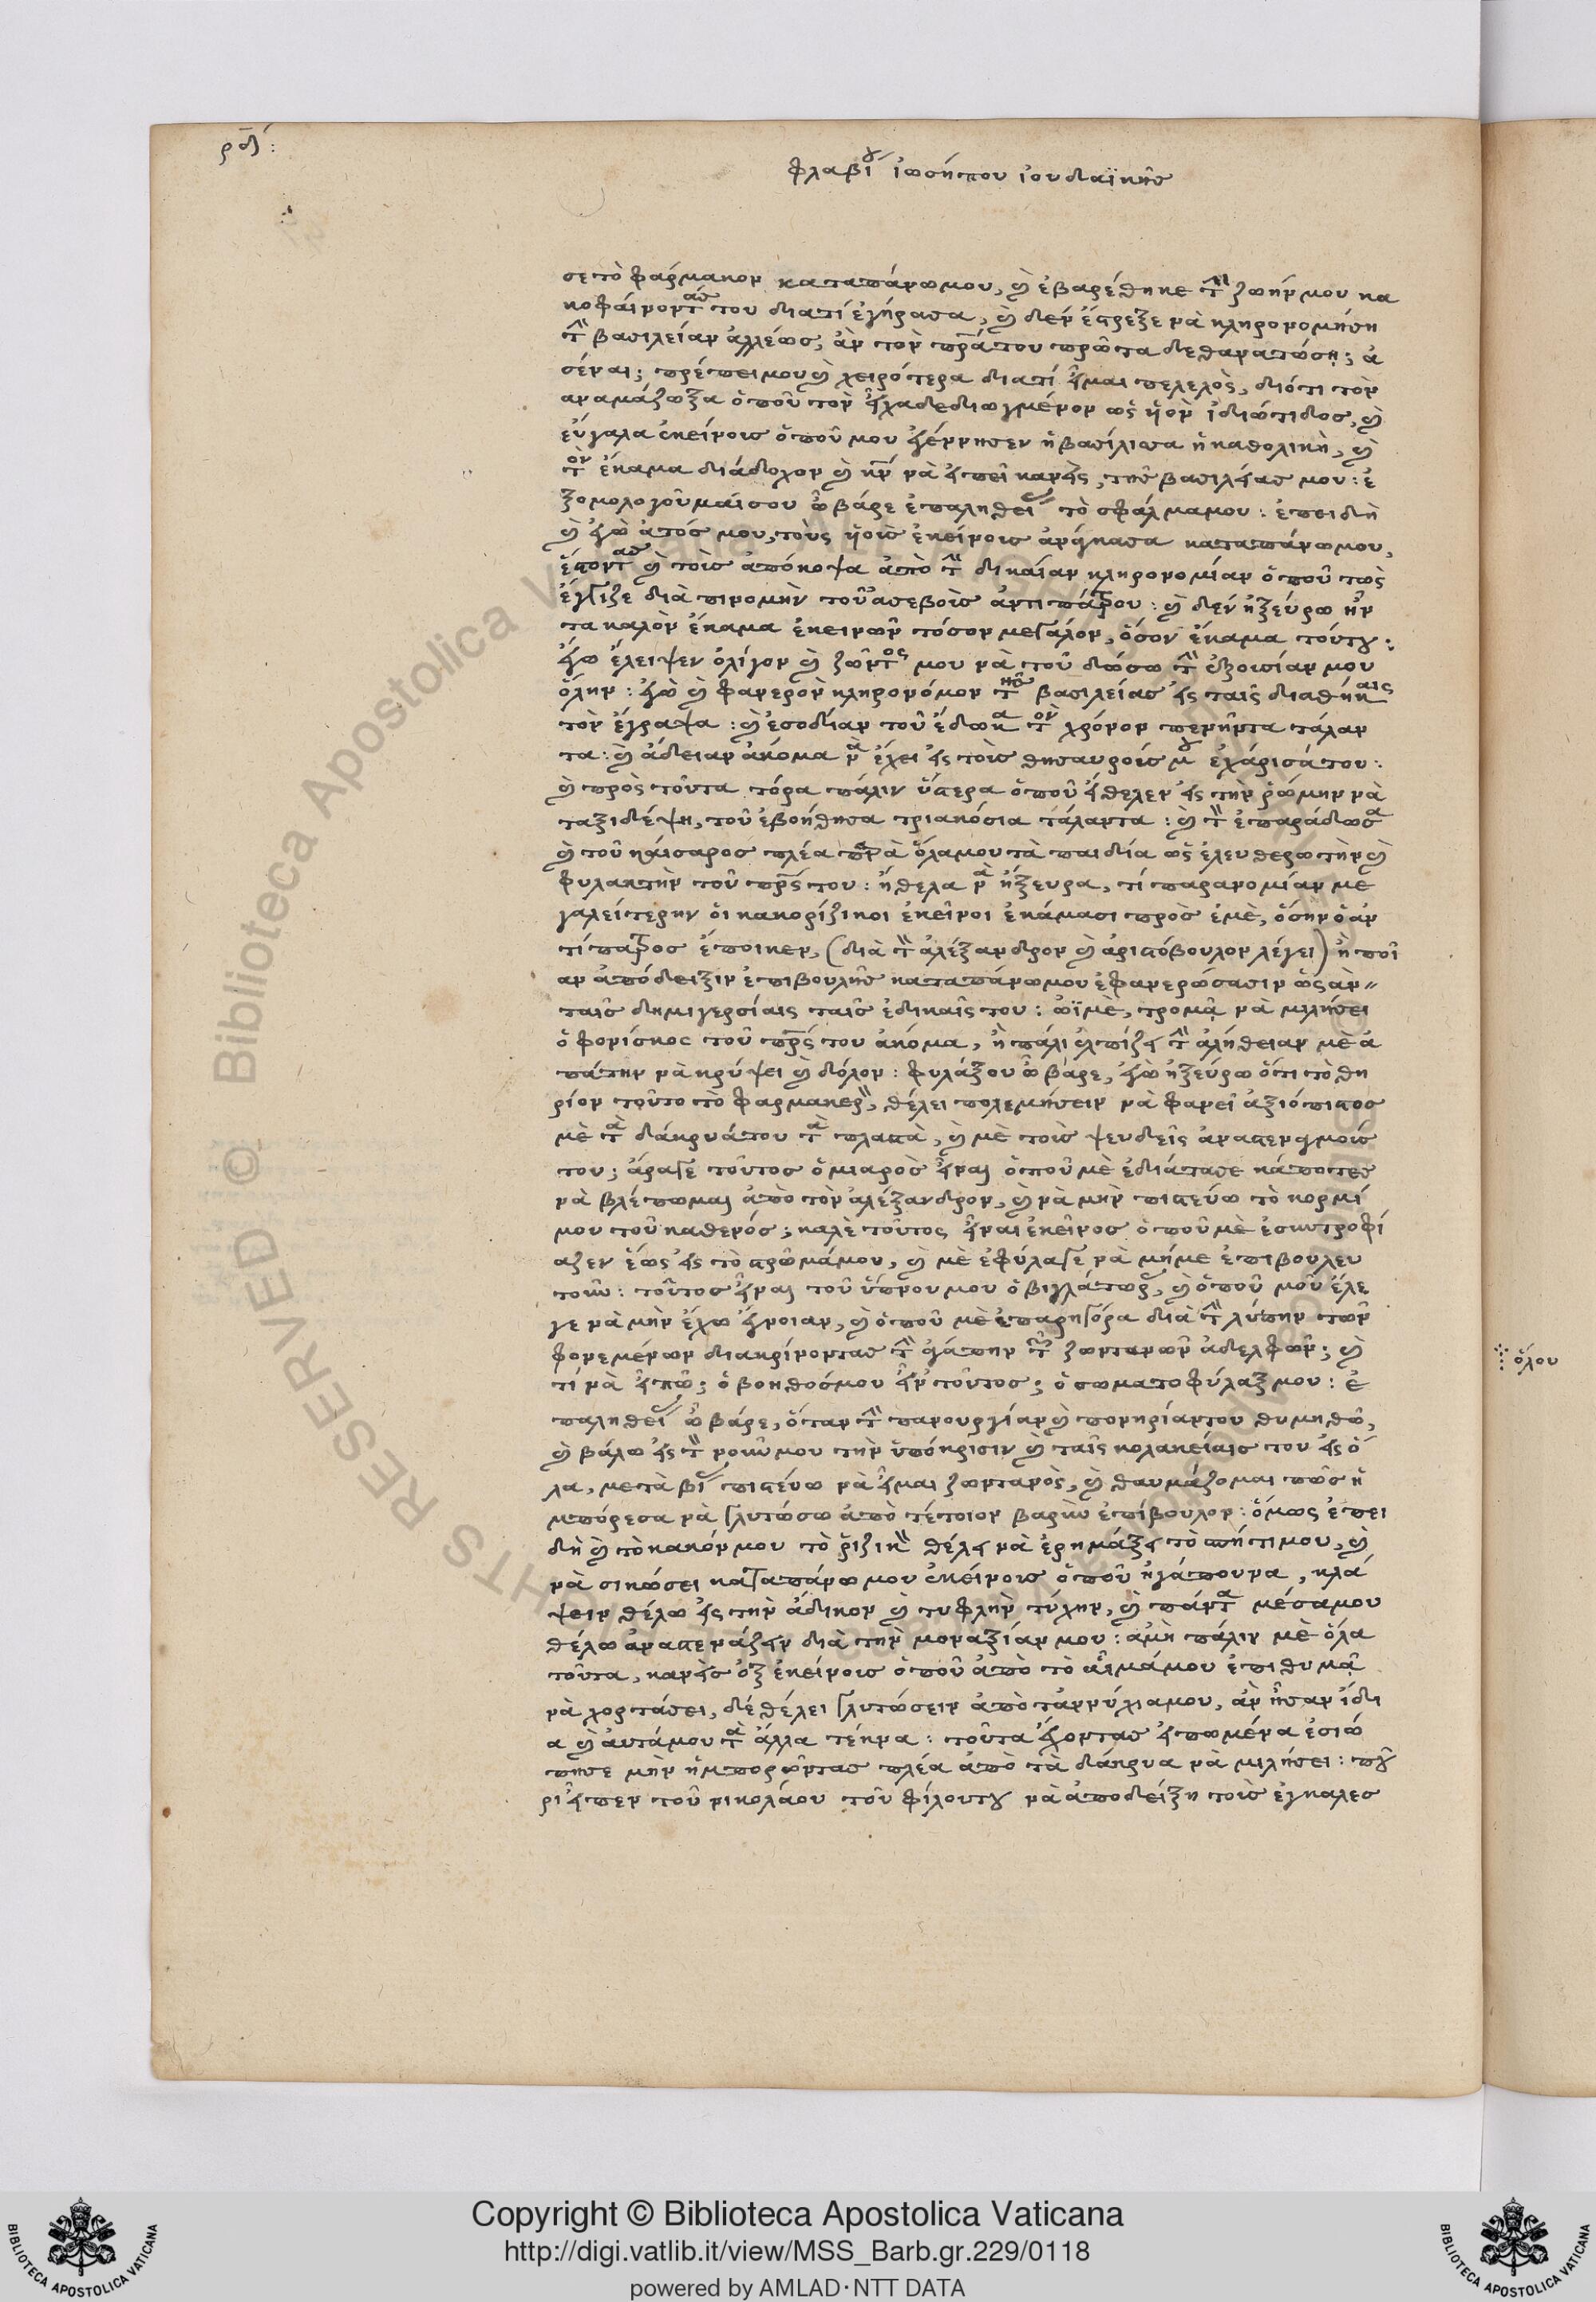 ρδ:
φλαβίου ἰωσήπου ἰουδαϊκῆς
σε τὸ φάρμακον καταπάνωμου, καὶ ἐβαρέθηκε τὴν ζωήν μου κα
κοφαίνοντάς του διατί ἐγήρασα, καὶ δεν ἔστρεξε νὰ κληρονομήση
τὴν βασιλείαν ἀλλέως, ἂν τὸν πρᾶτου πρῶτα δε θανατώση; ἀ
σέναι; πρέπει μου καὶ χειρότερα διατί εἶμαι πελελὸς, διότι τὸν
αναμάζωξα ὁποῦ τὸν εἶχα δεδιωγμένον ὡς υἱὸν ἰδιώτιδος, καὶ
εὔγαλα ἐκείνοις ὁποῦ μου ἐγέννησεν ἡ βασίλισα ἡ καθολικὴ, καὶ
τὸν ἔκαμα διάδοχον καὶ κἂν νὰ εἰπεῖ κανεὶς, τῆς βασιλείας μου: ἐ
ξομολογοῦμαίσου ὦ βάρε ἐπαληθείας τὸ σφάλμαμου: ἐπειδὴ
καὶ ἐγὼ ἀτός μου, τοὺς υἱοὶς ἐκείνοις ἀνέγκασα καταπάνωμου,
ἔστοντας καὶ τοῖς ἀπόκοψα ἀπὸ τὴν δικαίαν κληρονομίαν ὁποῦ τως
ἔγγιζε διὰ πινομὴν τοῦ ἀσεβοῖς ἀντιπάτρου: καὶ δεν ἠξεύρω κἂν
τα καλὸν ἔκαμα ἐκεινῶν τόσον μεγάλον, ὅσον ἔκαμα τούτου:
ἐγὼ ἔλειψεν ὀλίγον καὶ ζῶντος μου νὰ τοῦ δώσω τὴν ἐξουσίαν μου
ὅλην: ἐγὼ καὶ φανερὸν κληρονόμον τῆς βασιλείας εἰς ταῖς διαθήκαις
τὸν ἔγραψα: καὶ ἐσοδίαν τοῦ ἔδωκα τὸν χρόνον πενῆντα τάλαν
τα: καὶ ἄδειαν ἀκόμα νὰ ἔχει εἰς τοῖς θησαυροίς μου ἐχάρισάτου:
καὶ πρὸς τοῦτα τόρα πάλιν ὕστερα ὁποῦ ἤθελεν εἰς τὴν ῥώμην νὰ
ταξιδέψη, τοῦ ἐβοήθησα τριακόσια τάλαντα: καὶ τὸν ἐπαράδωσα
καὶ τοῦ καίσαρος πλέα παρὰ ὅλαμου τὰ παιδία ὡς ἐλευθερωτὴν καὶ
φυλακτὴν τοῦ πατρός του: ἤθελα νὰ ἤξευρα, τί παρανομίαν με
γαλείτερην ὁι κακορίζικοι ἐκεῖνοι ἐκάμασι πρὸς ἐμὲ, ὅσην ὁ ἀν
τίπατρος ἔποικεν, (διὰ τὸν ἀλέξανδρον καὶ ἀριστόβουλον λέγει) ἢ ποῖ
αν ἀπόδειξιν ἐπιβουλῆς καταπάνωμου ἐφανερώσασιν ὡς ἀν
ταῖς δημιγερσίαις ταῖς ἐδικαῖς του: ὠϊμὲ, τρομᾷ νὰ μιλήσει
ὁ φονίσκος τοῦ πατρός του ἀκόμα, ἢ πάλι ἐλπίζει τὴν ἀλήθειαν μὲ ἀ
πάτην νὰ κρύψει καὶ δόλον: φυλάξου ὦ βάρε, ἐγὼ ἠξεύρω ὅτι τὸ θη
ρίον τοῦτο τὸ φαρμακερὸν, θέλει πολεμήσειν νὰ φανεῖ ἀξιόπιστος
μὲ τὰ δάκρυάτου τὰ πλαστὰ, καὶ μὲ τοὶς ψευδεῖς ἀναστεναγμοίς
του; ἆραγε τοῦτος ὁ μιαρὸς εἶναι ὁποῦ μὲ ἐδιάτασε κάποτες
νὰ βλέπωμαι ἀπὸ τὸν ἀλέξανδρον, καὶ νὰ μὴν πιστεύω τὸ κορμί
μου τοῦ καθενός; καλὲ τοῦτος εἶναι ἐκεῖνος ὁποῦ μὲ ἐσυντροφί
αζεν ἕως εἰς τὸ στρῶμάμου, καὶ μὲ ἐφύλαγε νὰ μήμε ἐπιβουλευ
τοῦν: τοῦτος εἶναι τοῦ ὕπνου μου ὁ βιγλάτωρας, καὶ ὁποῦ μοῦ ἔλε
γε νὰ μὴν ἔχω ἔγνοιαν, καὶ ὁποῦ μὲ ἐπαρηγόρα διὰ τὴν λύπην τῶν
φονεμένων διακρίνοντας τὴν ἀγάπην τῶν ζωντανῶν ἀδελφῶν; καὶ
τί νὰ εἰπῶ; ὁ βοηθόσμου εἶν τοῦτος; ὁ σωματοφύλαξ μου: ἐ
παληθείας ὦ βάρε, ὅταν τὴν πανουργίαν καὶ πονηρίαντου θυμηθῶ,
καὶ βάλω εἰς τὸν νοῦν μου τὴν ὑπόκρισιν καὶ ταῖς κολακείαις του εἰς ὅ
λα, μετὰ βίας πιστεύω νὰ εἶμαι ζωντανὸς, καὶ θαυμάζομαι πῶς ἠ
μπόρεσα νὰ γλυτώσω ἀπὸ τέτοιον βαρὺν ἐπίβουλον: ὅμως ἐπει
δὴ καὶ τὸ κακόν μου τὸ ῥιζικὸν θέλει νὰ ἐρημάξει τὸ σπήτιμου, καὶ
νὰ σικώσει καταπάνωμου ἐκείνοις ὁποῦ ἠγάπουνα, κλά
ψειν θέλω εἰς τὴν ἄδικον καὶ τυφλὴν τύχην, καὶ πάντα μέσαμου
θέλω ἀναστενάζειν διὰ τὴν μοναξίαν μου: ἀμὴ πάλιν μὲ ὅλα
τοῦτα, κανὲις ἐξ ἐκείνοις ὁποῦ ἀπὸ τὸ αἷμάμου ἐπιθυμᾷ
νὰ χορτάσει, δὲ θέλει γλυτώσειν ἀπὸ τἀννύχιαμου, ἂν ἦσαν ἴδι
α καὶ ἀυτάμου τὰ ἄλλα τέκνα: τοῦτα ἔχοντας εἰπωμένα ἐσιώ
πησε μὴν ἠμπορῶντας πλέα ἀπὸ τὰ δάκρυα νὰ μιλήσει: του
ρι εἶπεν τοῦ νικολάου τοῦ φίλουτου νὰ ἀποδείξη τοὶς ἐγκαλεσ
ὅλου
Copyright © Biblioteca Apostolica Vaticana
http://digi.vatlib.it/view/MSS_Barb.gr.229/0118
powered by AMLAD·NTT DATA